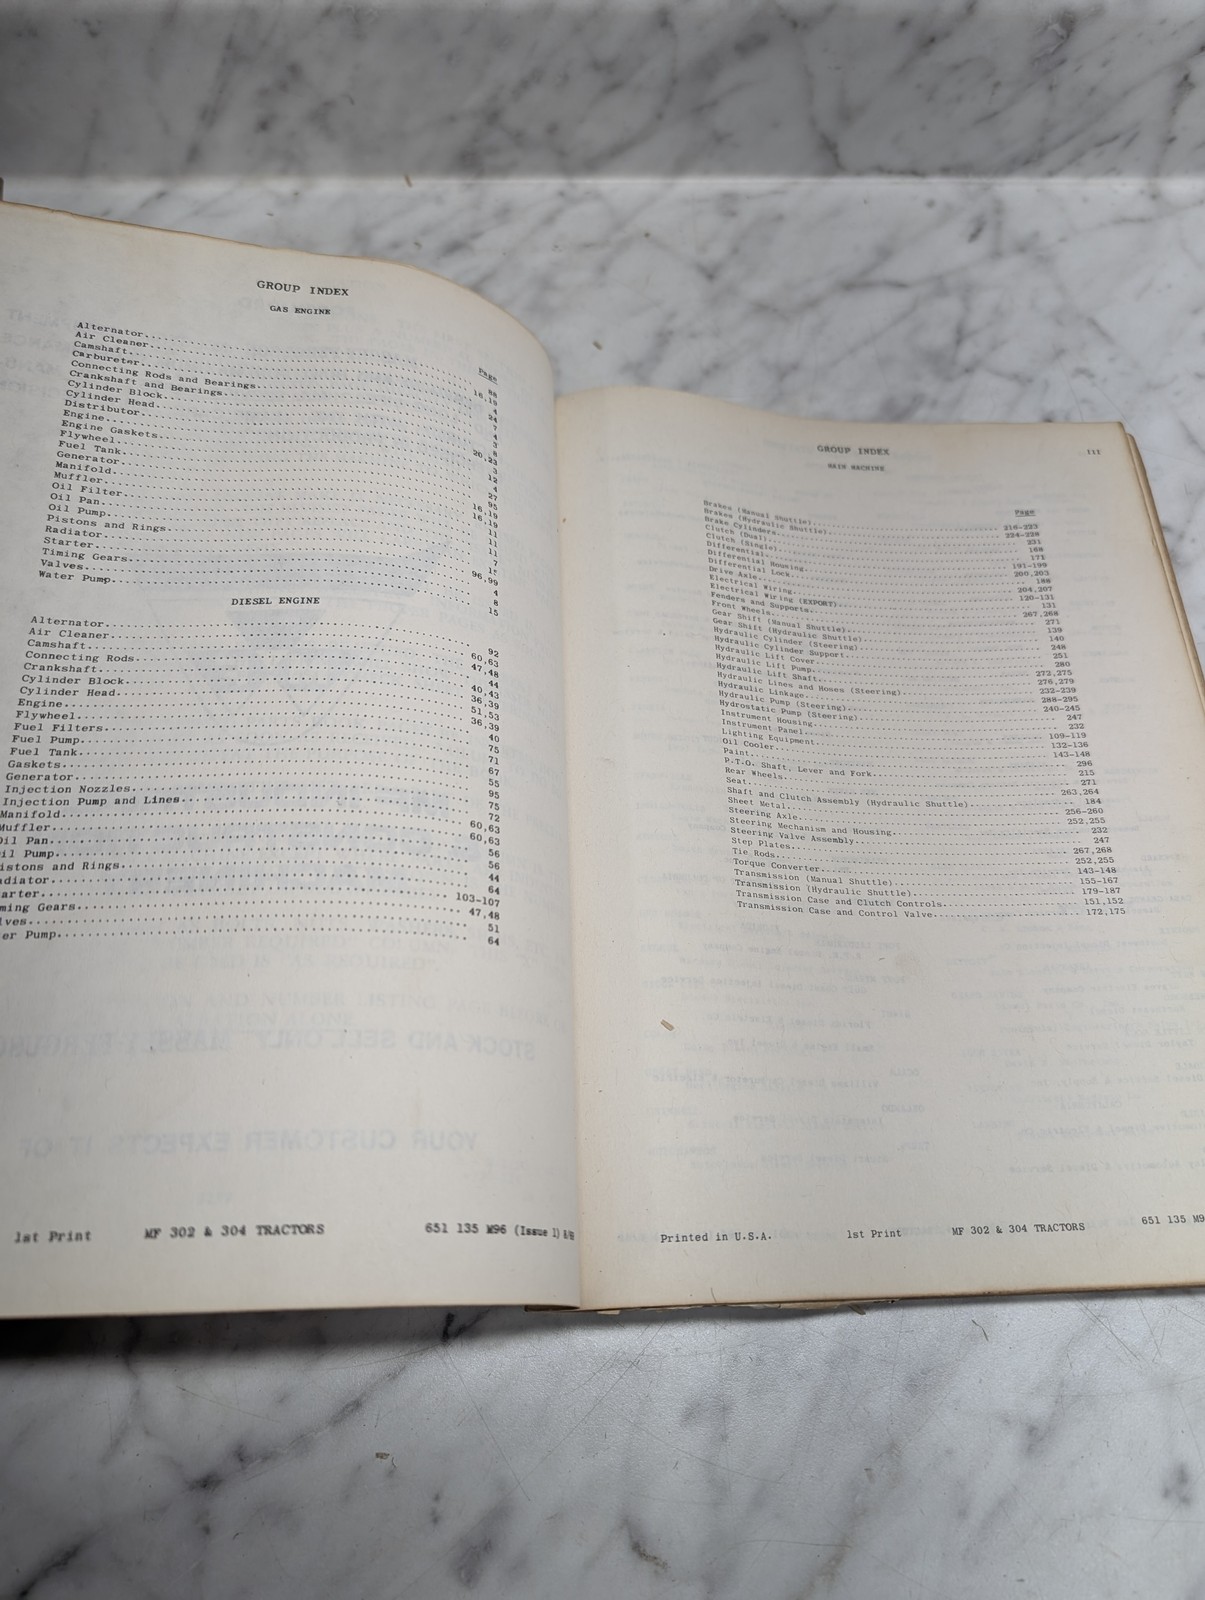 GROUP INDEX
GAS ENGINE
Page
Alternator 88
Air Cleaner 16,19
Camshaft 4
Carbureter 24
Connecting Rods and Bearings 7
Crankshaft and Bearings 4
Cylinder Block 3
Cylinder Head 8
Distributor 20,23
Engine 3
Engine Gaskets 12
Flywheel 4
Fuel Tank 27
Generator 95
Manifold 16,19
Muffler 16,19
Oil Filter 11
Oil Pan 11
Oil Pump 11
Pistons and Rings 7
Radiator
Starter 96,99
Timing Gears 4
Valves 8
Water Pump 15
DIESEL ENGINE
Alternator 92
Air Cleaner 60,63
Camshaft 47,48
Connecting Rods 44
Crankshaft 40,43
Cylinder Block 36,39
Cylinder Head 51,53
Engine 36,39
Flywheel 40
Fuel Filters 75
Fuel Pump 71
Fuel Tank 67
Gaskets 55
Generator 95
Injection Nozzles 75
Injection Pump and Lines 72
Manifold 60,63
Muffler 60,63
Oil Pan 56
il Pump 56
istons and Rings 44
adiator 64
arter 103-107
ming Gears 47,48
lves 51
er Pump 64
1st Print MF 302 & 304 TRACTORS 651 135 M96 (Issue 1)
GROUP INDEX iii
MAIN MACHINE
Page
Brakes (Manual Shuttle) 216-223
Brakes (Hydraulic Shuttle) 224-228
Brake Cylinders 231
Clutch (Dual) 168
Clutch (Single) 171
Differential 191-199
Differential Housing 200,203
Differential Lock 188
Drive Axle 204,207
Electrical Wiring 120-131
Electrical Wiring (EXPORT) 131
Fenders and Supports 267,268
Front Wheels 271
Gear Shift (Manual Shuttle) 139
Gear Shift (Hydraulic Shuttle) 140
Hydraulic Cylinder (Steering) 248
Hydraulic Cylinder Support 251
Hydraulic Lift Cover 280
Hydraulic Lift Pump 272,275
Hydraulic Lift Shaft 276,279
Hydraulic Lines and Hoses (Steering) 232-239
Hydraulic Linkage 288-295
Hydraulic Pump (Steering) 240-245
Hydrostatic Pump (Steering) 247
Instrument Housing 232
Instrument Panel 109-119
Lighting Equipment 132-136
Oil Cooler 143-148
Paint 296
P.T.O. Shaft, Lever and Fork 215
Rear Wheels 271
Seat 263,264
Shaft and Clutch Assembly (Hydraulic Shuttle) 184
Sheet Metal 256-260
Steering Axle 252,255
Steering Mechanism and Housing 232
Steering Valve Assembly 247
Step Plates 267,268
Tie Rods 252,255
Torque Converter 143-148
Transmission (Manual Shuttle) 155-167
Transmission (Hydraulic Shuttle) 179-187
Transmission Case and Clutch Controls 151,152
Transmission Case and Control Valve 172,175
Printed in U.S.A. 1st Print MF 302 & 304 TRACTORS 651 135 M9